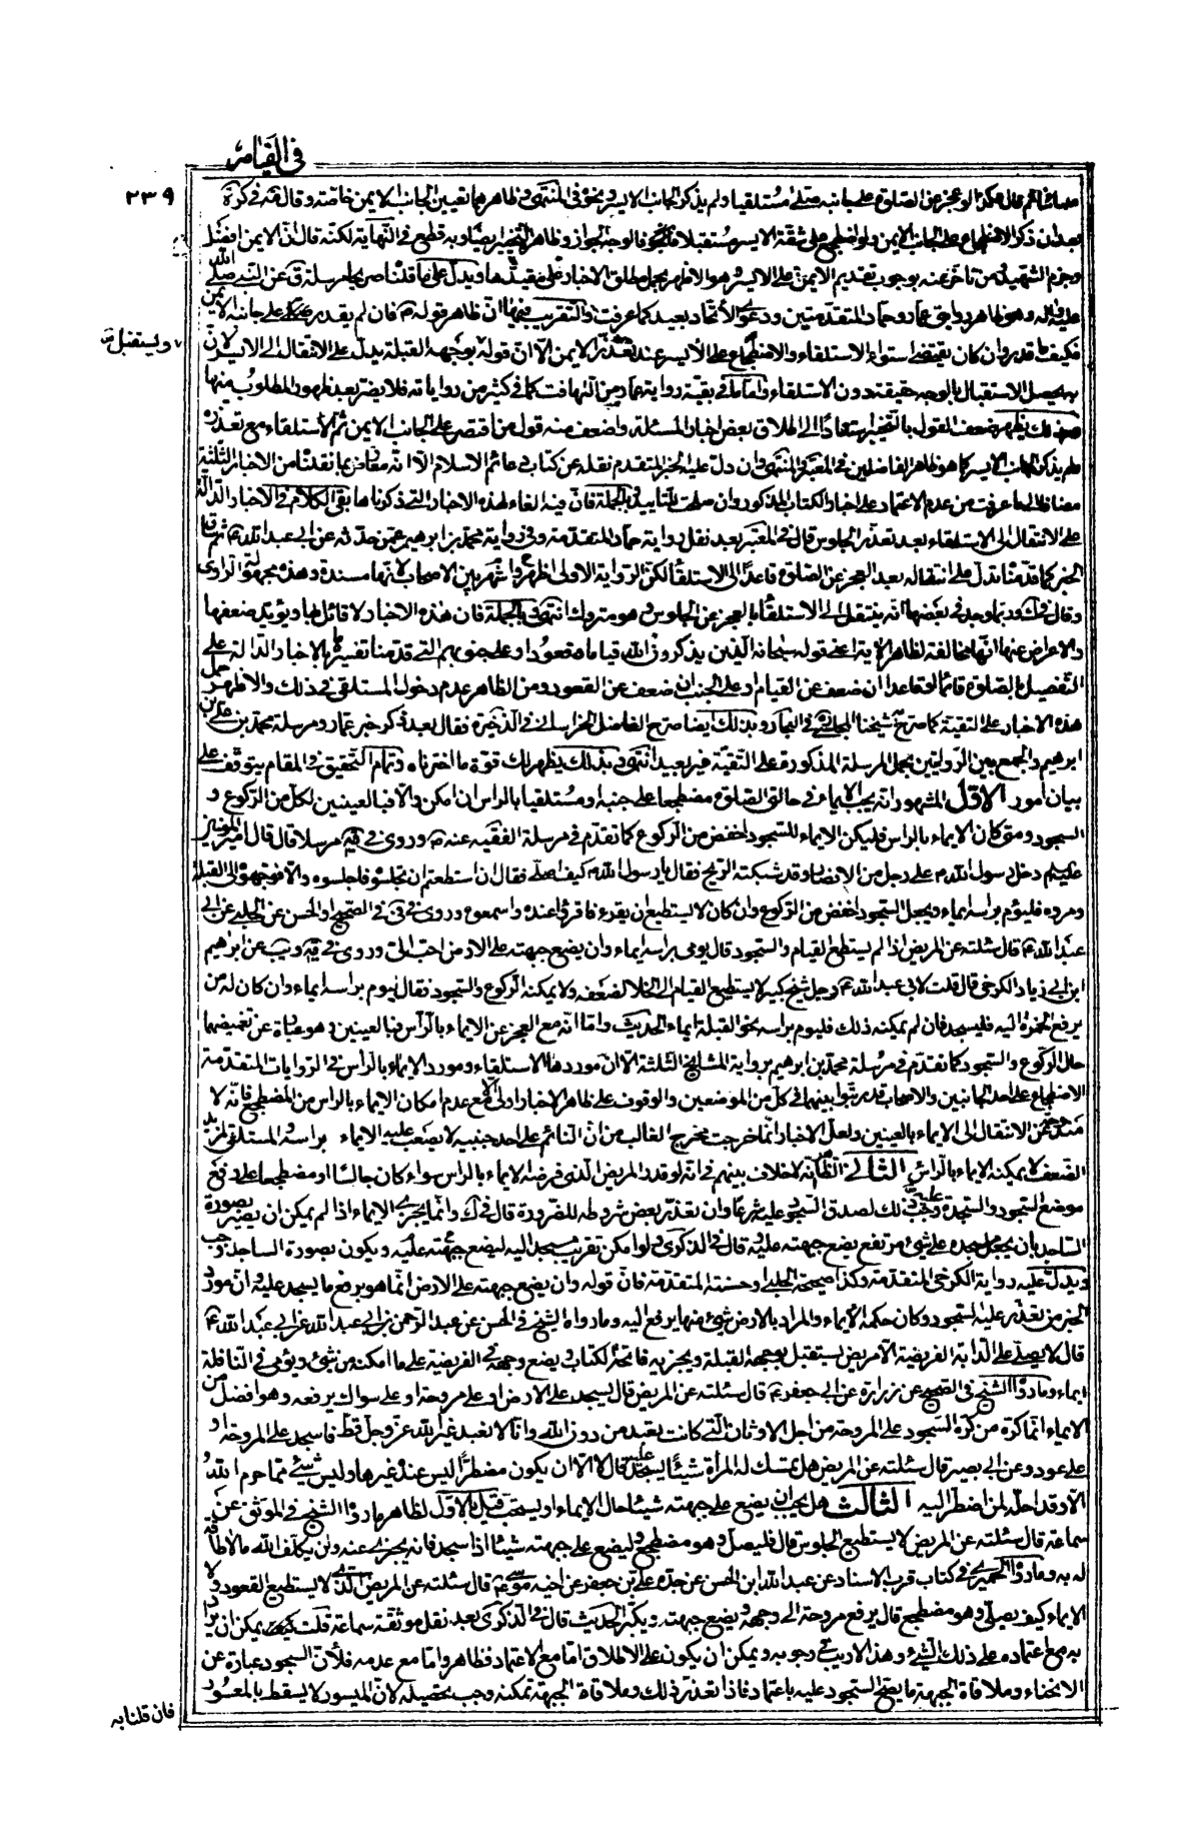 في القيام
٢٣٩
بعد ان ذكر الاضطجاع على الجانب الايمن ولو اضطجع على شقه الايسر مستقبلا فالوجه الجواز وظاهره التخيير ايضا وبه قطع في النهاية لكنه قال ان الايمن افضل
وجزم الشهيد ومن تاخر عنه بوجوب تقديم الايمن على الايسر وهو الاظهر
عليه واله وهو ظاهر روايتي عمار وحماد المتقدمتين ودعوى الاتحاد بعيد كما عرفت والتقريب فيها ان ظاهر قوله فان لم يقدر على جانبه الايمن
ويستقبل
فكيف ما قدر وان كان يقتضي استواء الاستلقاء والاضطجاع على الايسر عند تعذر الايمن الا ان قوله بوجهه القبلة يدل على الانتقال الى الايسر لان
به يحصل الاستقبال بالوجه حقيقة دون الاستلقاء واما ما في بقية رواية عمار من التهافت كما في كثير من رواياته فلا يضر بعد ظهور المطلوب منها
ضعف القول بالتخيير استنادا الى اطلاق بعض اخبار المسئلة واضعف منه قول من اقتصر على الجانب الايمن ثم الاستلقاء مع تعذره
ولم يذكر الجانب الايسر كما هو ظاهر الفاضلين في المعتبر والمنتهى وان دل عليه الخبر المتقدم نقله عن كتاب دعائم الاسلام الا انه معارض بما نقلنا من الاخبار الثلثة
مضافا الى ما عرفت من عدم الاعتماد على اخبار الكتاب المذكور وان صلحت للتاييد وبالجملة فان فيه الغاء لهذه الاخبار التي ذكرناها بقي الكلام في الاخبار الدالة
على الانتقال الى الاستلقاء بعد تعذر الجلوس قال في المعتبر بعد نقل رواية حماد المتقدمة وفي رواية محمد بن ابرهيم عمن حدثه عن ابي عبد الله ع ثم ساق
الخبر كما قدمنا تدل على انتقاله بعد العجز عن الصلوة قاعدا الى الاستلقاء لكن الرواية الاولى اظهر واشهر بين الاصحاب لانها مسندة وهذه مجهولة الراوي
وقال في ك وربما وجد في بعضها انه ينتقل الى الاستلقاء بالعجز عن الجلوس وهو متروك انتهى وبالجملة فان هذه الاخبار لا قائل بها ويؤيد ضعفها
والاعراض عنها انها مخالفة لظاهر الاية اعني قوله سبحانه الذين يذكرون الله قياما وقعودا وعلى جنوبهم التي قدمنا تفسيرها بالاخبار الدالة على
التفصيل بالصلوة قائما او قاعدا ان ضعف عن القيام او على الجنب ان ضعف عن القعود ومن الظاهر عدم دخول المستلقي في ذلك والاظهر حمل
هذه الاخبار على التقية كما صرح به شيخنا المجلسي في البحار وبذلك ايضا صرح الفاضل الخراساني في الذخيرة فقال بعد ذكر خبر عمار ومرسلة محمد بن
ابرهيم والجمع بين الروايتين بحمل المرسلة المذكورة على التقية غير بعيد انتهى وبذلك يظهر لك قوة ما اخترناه وتمام التحقيق في المقام يتوقف على
بيان امور الاول المشهور انه يجب الايماء في حالتي الصلوة مضطجعا على جنبه او مستلقيا بالراس ان امكن والا فبالعينين لكل من الركوع و
السجود ومتى كان الايماء بالراس فليكن الايماء للسجود اخفض من الركوع كما تقدم في مرسلة الفقيه عنه ص وروى في يه مرسلا قال قال امير المؤمنين
عليه السلام دخل رسول الله ص على رجل من الانصار وقد شبكته الريح فقال يا رسول الله ص كيف اصلي فقال ان استطعتم ان تجلسوه فاجلسوه والا فوجهوه الى القبلة
ومروه فليوم براسه ايماء ويجعل السجود اخفض من الركوع وان كان لا يستطيع ان يقرء فاقرؤا عنده واسمعوه وروى في في الصحيح او الحسن عن الحلبي عن ابي
عبد الله ع قال سئلته عن المريض اذا لم يستطع القيام والسجود قال يومي براسه ايماء وان يضع جبهته على الارض احب الي وروى في يه ويب عن ابراهيم
ابن ابي زياد الكرخي قال قلت لابي عبد الله ع رجل شيخ كبير لا يستطيع القيام الى الخلاء لضعفه ولا يمكنه الركوع والسجود فقال ليوم براسه ايماء وان كان له من
يرفع الخمرة اليه فليسجد فان لم يمكنه ذلك فليوم براسه نحو القبلة ايماء الحديث واما انه مع العجز عن الايماء بالراس فبالعينين وهو عبارة عن تغميضهما
حال الركوع والسجود كما تقدم في مرسلة محمد بن ابرهيم برواية المشايخ الثلثة الا ان موردها الاستلقاء ومورد الايماء بالراس في الروايات المتقدمة
الاضطجاع على احد الجانبين والاصحاب قد رتبوا بينهما في كل من الموضعين والوقوف على ظاهر الاخبار اولى الا مع عدم امكان الايماء بالراس من المضطجع فانه لا
مندوحة عن الانتقال الى الايماء بالعينين ولعل الاخبار انما خرجت مخرج الغالب من ان النائم على احد جنبيه لا يصعب عليه الايماء براسه والمستلقي لمزيد
الضعف لا يمكنه الايماء بالراس الثاني الظاهر انه لا خلاف بينهم في انه لو قدر المريض الذي فرضه الايماء بالراس سواء كان جالسا او مضطجعا على رفع
موضع السجود والسجدة عليه وجب ذلك لصدق السجود عليه شرعا وان تعذر بعض شروطه للضرورة قال في ك وانما يجزي الايماء اذا لم يمكن ان يصير بصورة
الساجد بان يجعل مسجده على شيء مرتفع يضع جبهته عليه وقال في الذكرى ولو امكن تقريب مسجد اليه ليضع جبهته عليه ويكون بصورة الساجد وجب
ويدل عليه رواية الكرخي المتقدمة وكذا صحيحة الحلبي او حسنته المتقدمة فان قوله وان يضع جبهته على الارض انما هو برفع ما يسجد عليه اذ مورد
الخبر من تعذر عليه السجود وكان حكمه الايماء والمراد بالارض شيء منها يرفع اليه وما رواه الشيخ في الحسن عن عبد الرحمن بن ابي عبد الله عن ابي عبد الله ع
قال لا يصلي على الدابة الفريضة الا مريض يستقبل بوجهه القبلة ويجزيه فاتحة الكتاب ويضع وجهه في الفريضة على ما امكنه من شيء ويؤمي في النافلة
ايماء وما رواه الشيخ في الصحيح عن زرارة عن ابي جعفر ع قال سئلته عن المريض قال يسجد على الارض او على مروحة او على سواك يرفعه وهو افضل من
الايماء انما كره من كره السجود على المروحة من اجل الاوثان التي كانت تعبد من دون الله وانا لا نعبد غير الله عز وجل قط فاسجد على المروحة او
على عود وعن ابي بصير قال سئلته عن المريض هل تمسك له المرأة شيئا يسجد عليه قال لا الا ان يكون مضطرا ليس عنده غيرها وليس شيء مما حرم الله
الا وقد احله لمن اضطر اليه الثالث هل يجب ان يضع على جبهته شيئا حال الايماء او يستحب قيل بالاول لظاهر ما رواه الشيخ في الموثق عن
سماعة قال سئلته عن المريض لا يستطيع الجلوس قال فليصل وهو مضطجع وليضع على جبهته شيئا اذا سجد فانه يجزي عنه ولن يكلف الله ما لا طاقة
له به وما رواه الحميري في كتاب قرب الاسناد عن عبد الله ابن الحسن عن جده علي بن جعفر عن اخيه موسى ع قال سئلته عن المريض الذي لا يستطيع القعود ولا
الايماء كيف يصلي وهو مضطجع قال يرفع مروحة الى وجهه ويضع جبهته ويكبر الحديث قال في الذكرى بعد نقل موثقة سماعة قلت يمكن ان يراد
به مع اعتماده على ذلك الشيء وهذا لا ريب في وجوبه ويمكن ان يكون على الاطلاق اما مع الاعتماد فظاهر واما مع عدمه فلان السجود عبارة عن
الانحناء وملاقاة الجبهة ما يصح السجود عليه باعتماد فاذا تعذر ذلك وملاقاة الجبهة ممكنة وجب تحصيله لان الميسور لا يسقط بالمعسور
فان قلنا به